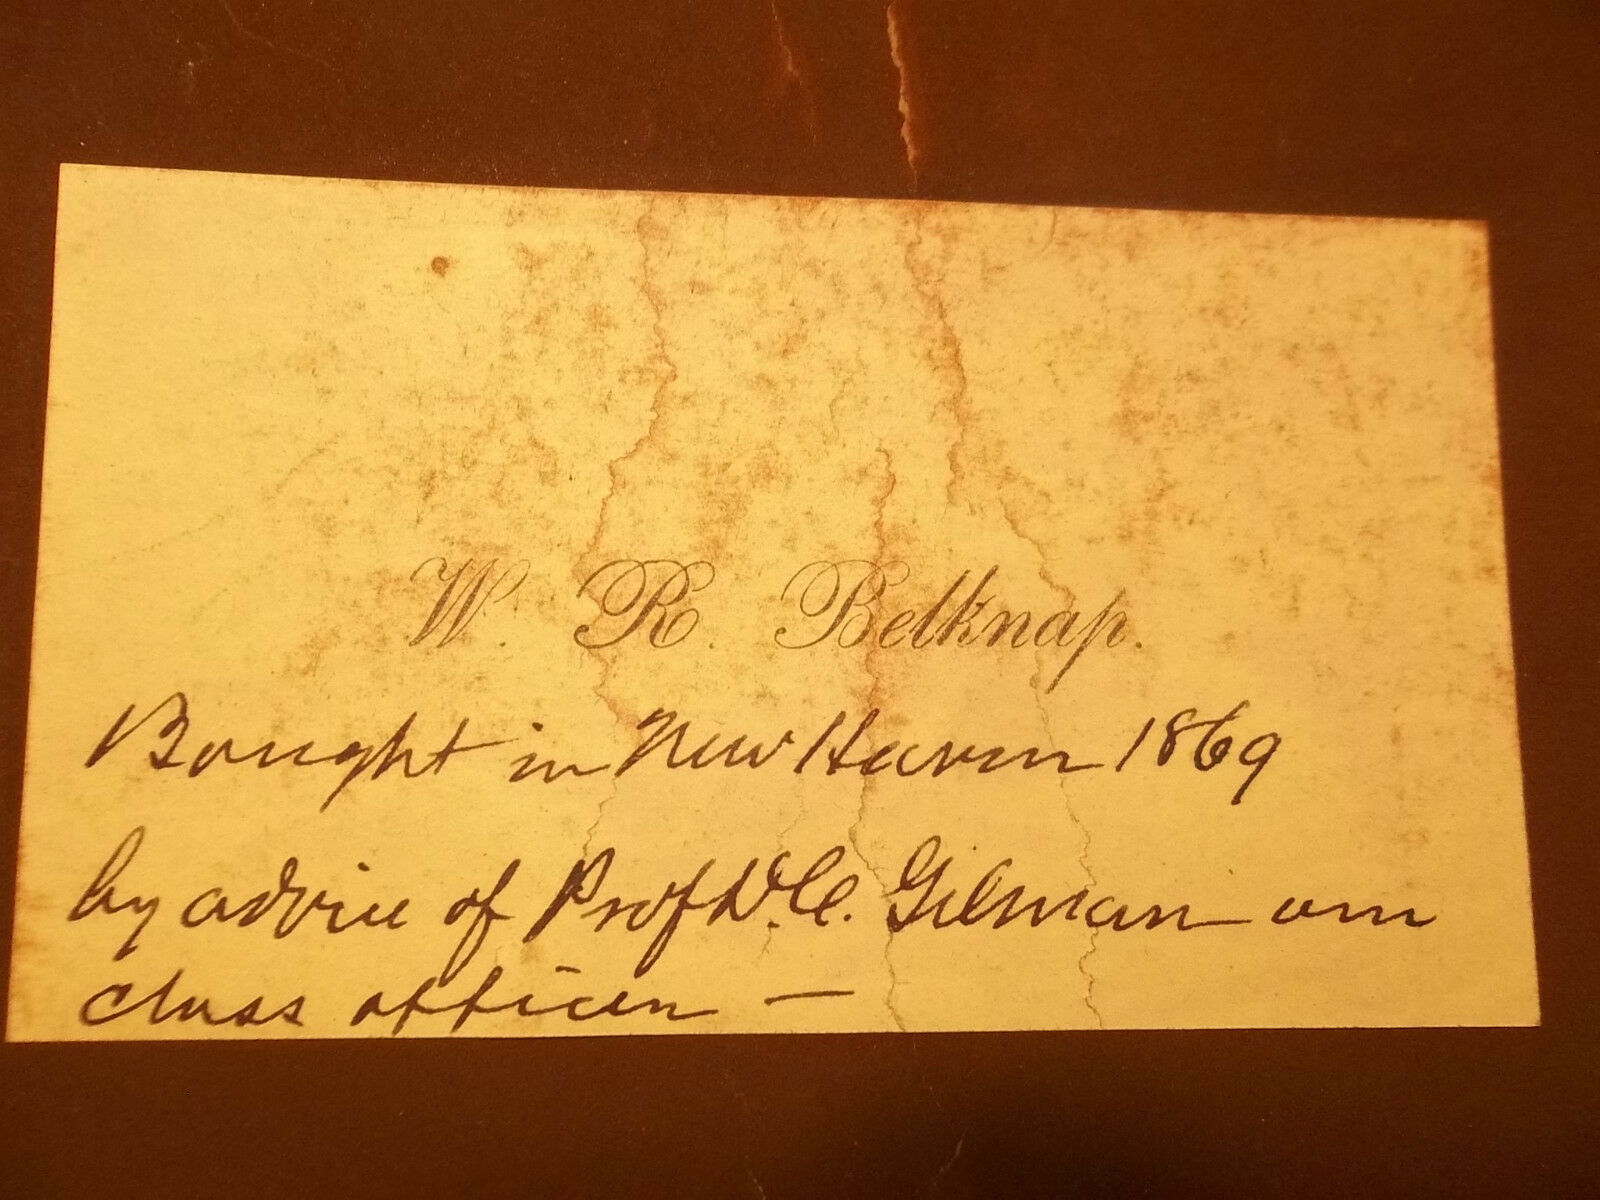 W. R. Belknap.
Bought in New Haven 1869
by advice of Prof D. C. Gilman our
class officer —